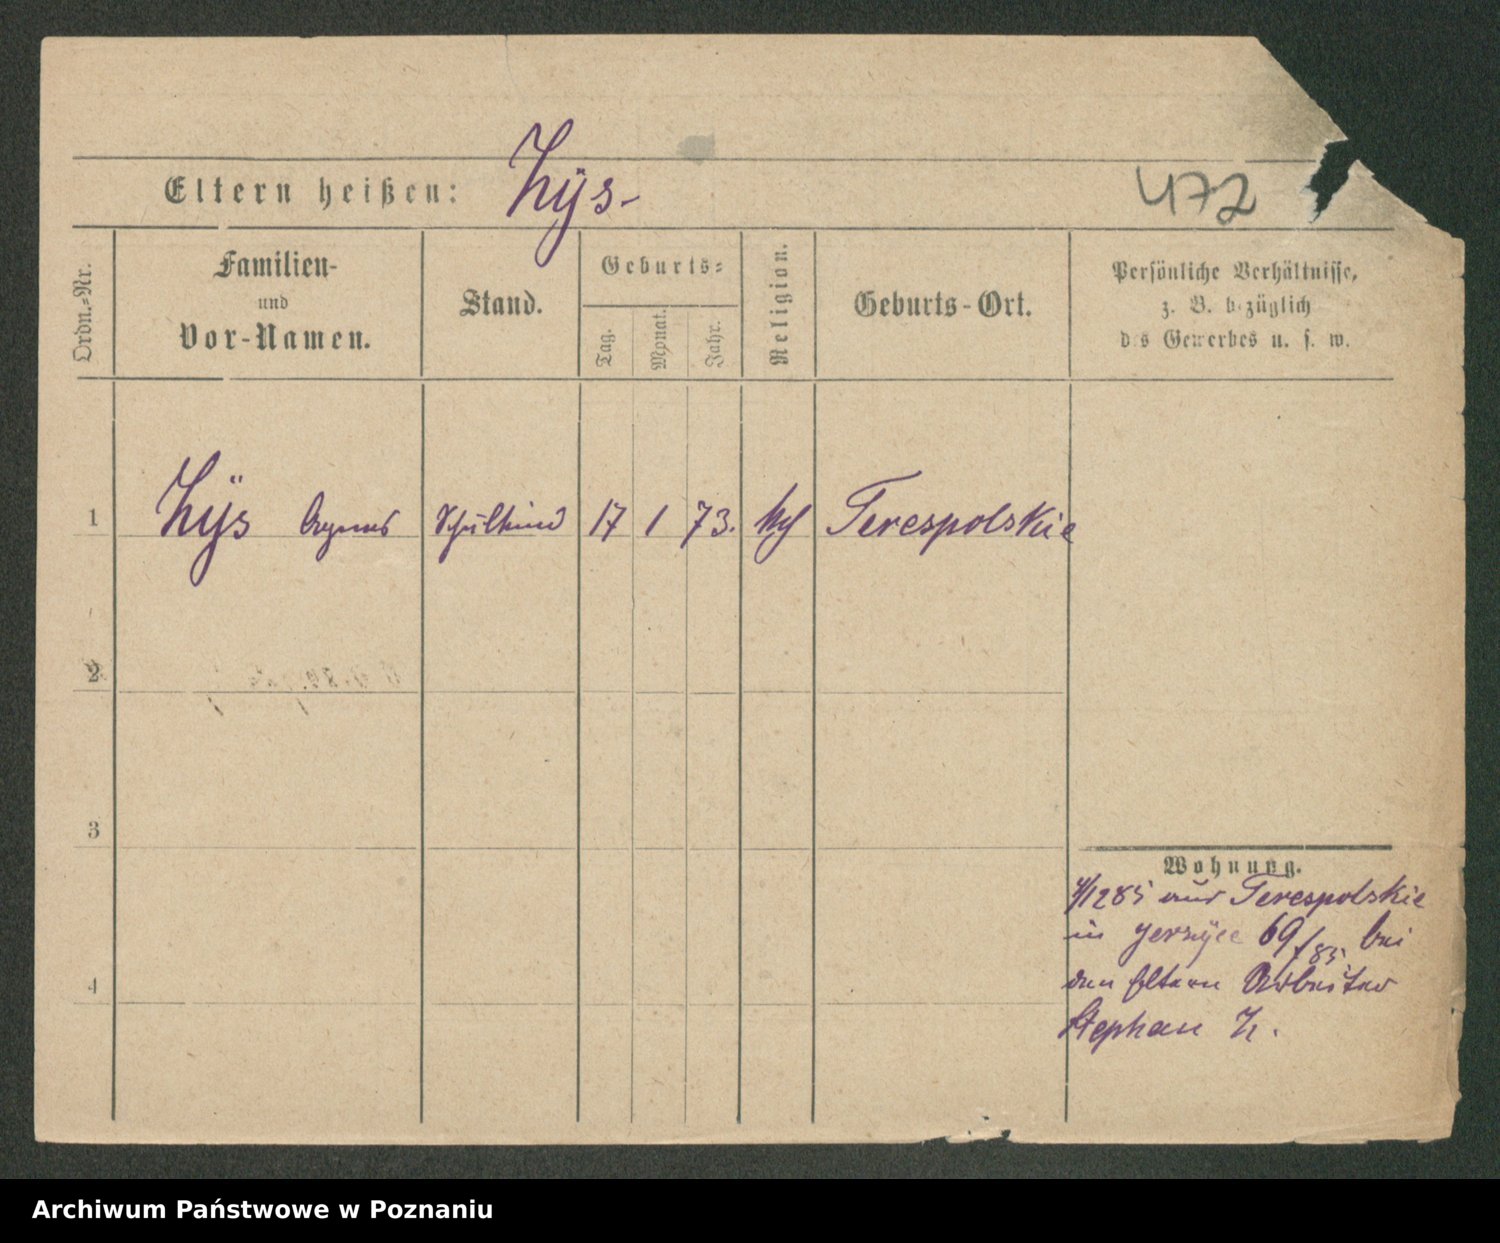 Eltern heißen: Zÿs-
472
Ordn.=Nr.
Familien-
und
Vor-Namen.
Stand.
Geburts=
Tag.
Monat.
Jahr.
Religion.
Geburts-Ort.
Persönliche Verhältnisse,
z. B. bezüglich
des Gewerbes u. s. w.
1 Zÿs Agnes Schulkind 17 1 73. kth Terespolskie
2
3
4
Wohnung.
1285 aus Terespolskie
in Jerzÿce 69/85. bei
den Eltern Arbeiter
Stephan Z.
Archiwum Państwowe w Poznaniu